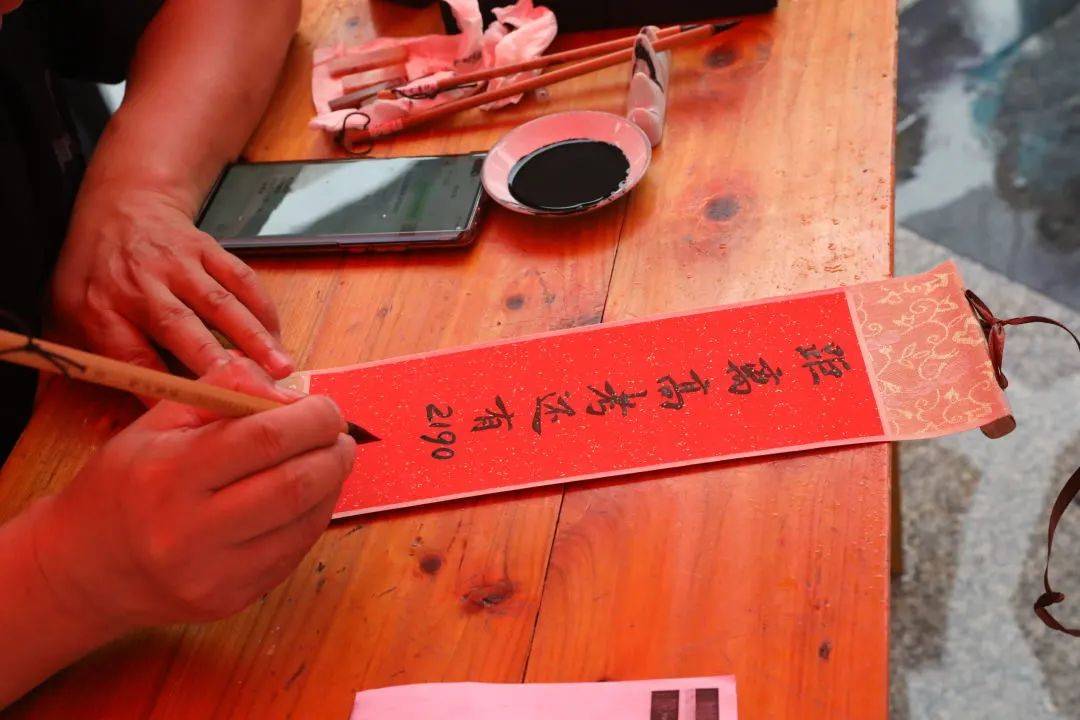 距离高考还有2190